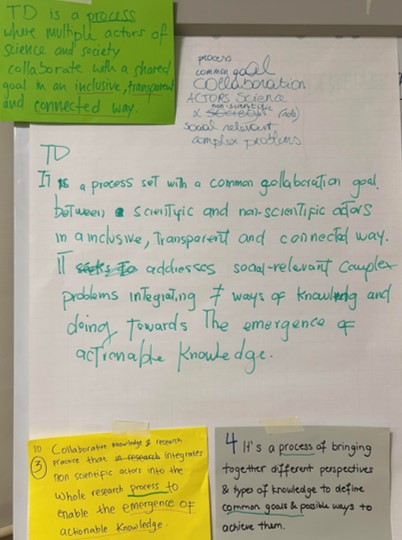 TD is a process
where multiple actors of
science and society
collaborate with a shared
goal in an inclusive, transparent
and connected way.
process
common goal
COllaboration
ACTORS Science
non-scientific
& society (role)
social relevant
complex problems
TD
IT is a process set with a common gollaboration goal.
between scientific and non-scientific actors
in a inclusive, Transparent and connected way.
IT seeks to addresses social-relevant complex
problems integrating ≠ ways of knowing and
doing towards The emergence of
actionable Knowledge.
10 Collaborative knowledge & research
3 practice that in research integrates
non scientific actors into the
whole research process to
enable the emergence of
actionable Knowledge.
4 It's a process of bringing
together different perspectives
& types of knowledge to define
common goals & possible ways to
achieve them.